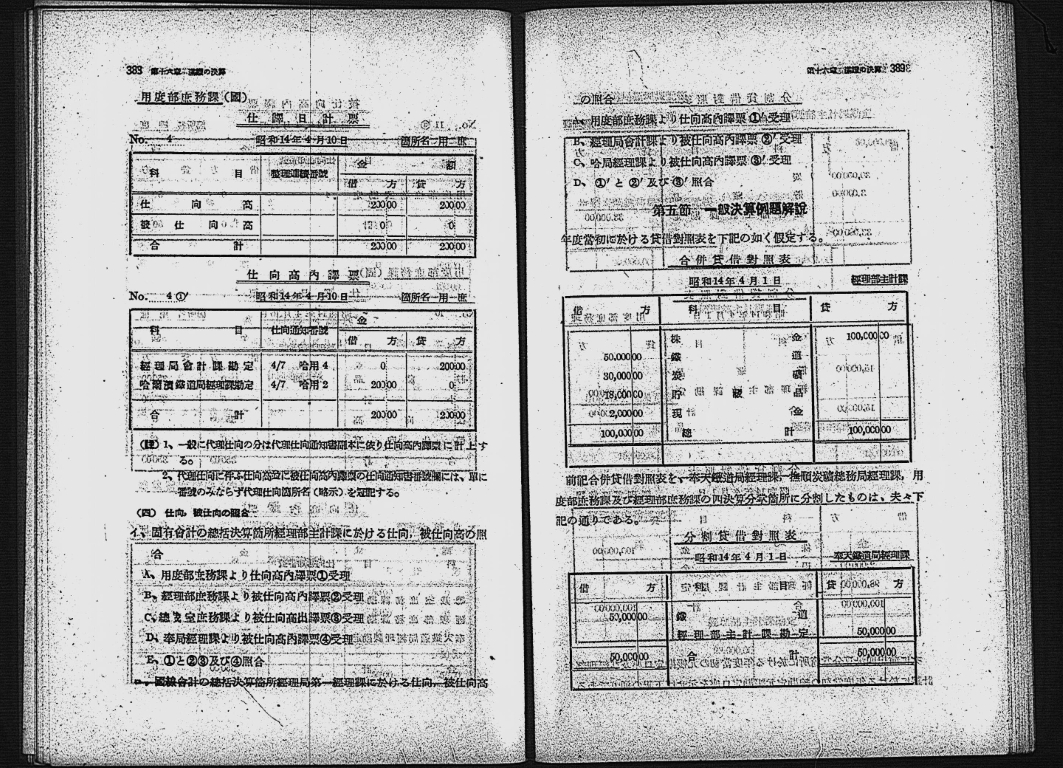 388 第十六章 
用度部庶務課(國)
仕譯日計票
No. 4 昭和14年4月10日 箇所名 用一庶
科 目 金 額
借 方 貸 方
仕 向 高 20000 20000
被 仕 向 高 0 0
合 計 20000 20000
仕向高內譯票
No. 4①' 昭和14年4月10日 箇所名 用一庶
科 目 仕向通知番號 金
借 方 貸 方
經理局會計課勘定 4/7 哈用4 0 20000
哈爾濱鐵道局經理課勘定 4/7 哈用2 20000 0
合 計 20000 20000
(註) 1、一般に代理仕向の分は代理仕向通知書副本に依り仕向高內譯票に計上す
る。
2、代理仕向に伴ふ仕向高並に被仕向高內譯票の仕向通知書番號欄には、單に
番號のみならず代理仕向箇所名(略示)を冠記する。
(四) 仕向、被仕向の照合
イ、固有會計の總括決算箇所經理部主計課に於ける仕向、被仕向高の照
合
A、用度部庶務課より仕向高內譯票①受理
B、經理部庶務課より被仕向高內譯票②受理
C、總 室庶務課より被仕向高 譯票③受理
D、奉局經理課より被仕向高內譯票④受理
E、①と②③及び④照合
國線會計の總括決算箇所經理局第一經理課に於ける仕向、被仕向高
第十六章 の決算 389
の照合
A、用度部庶務課より仕向高內譯票①'受理
B、經理局會計課より被仕向高內譯票②'受理
C、哈局經理課より被仕向高內譯票③'受理
D、①'と②'及び③'照合
第五節 一般決算例題解說
年度當初に於ける貸借對照表を下記の如く假定する。
合併貸借對照表
昭和14年4月1日 經理部主計課
借 方 科 目 貸 方
株 金 100,00000
50,00000 鐵 道
30,00000 炭 礦
18,00000 貯 藏 品
2,00000 現 金
100,00000 總 計 100,00000
前記合併貸借對照表を、奉天鐵道局經理課、撫順炭礦總務局經理課、用
度部庶務課及び經理部庶務課の四決算分擔箇所に分割したものは、夫々下
記の通りである。
分割貸借對照表
昭和14年4月1日 奉天鐵道局經理課
借 方 科 目 貸 方
50,00000 鐵 道
經理部主計課勘定 50,00000
50,00000 合 計 50,00000